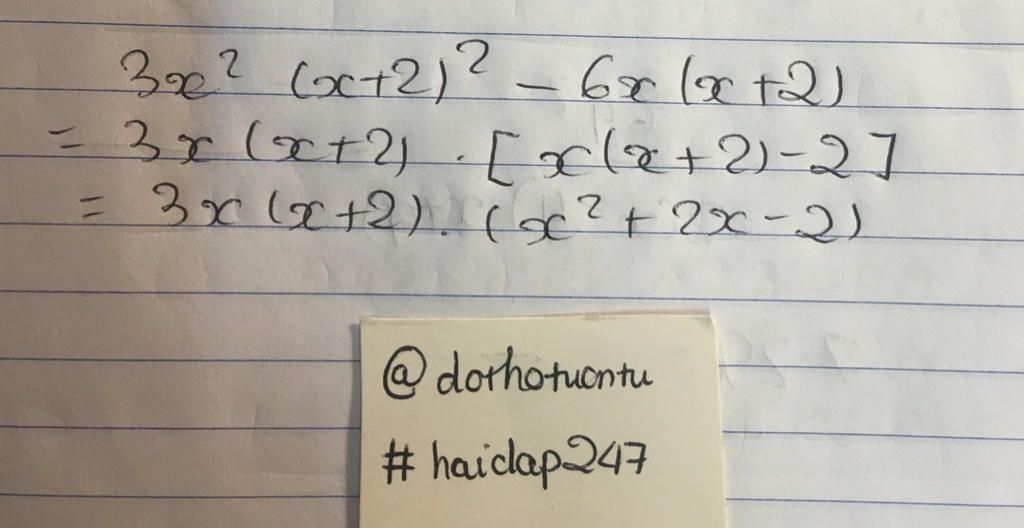 3x² (x+2)² - 6x (x+2)
= 3x (x+2) . [x(x+2)-2]
= 3x (x+2) . (x² + 2x - 2)
@dothotuontu
#haidap247